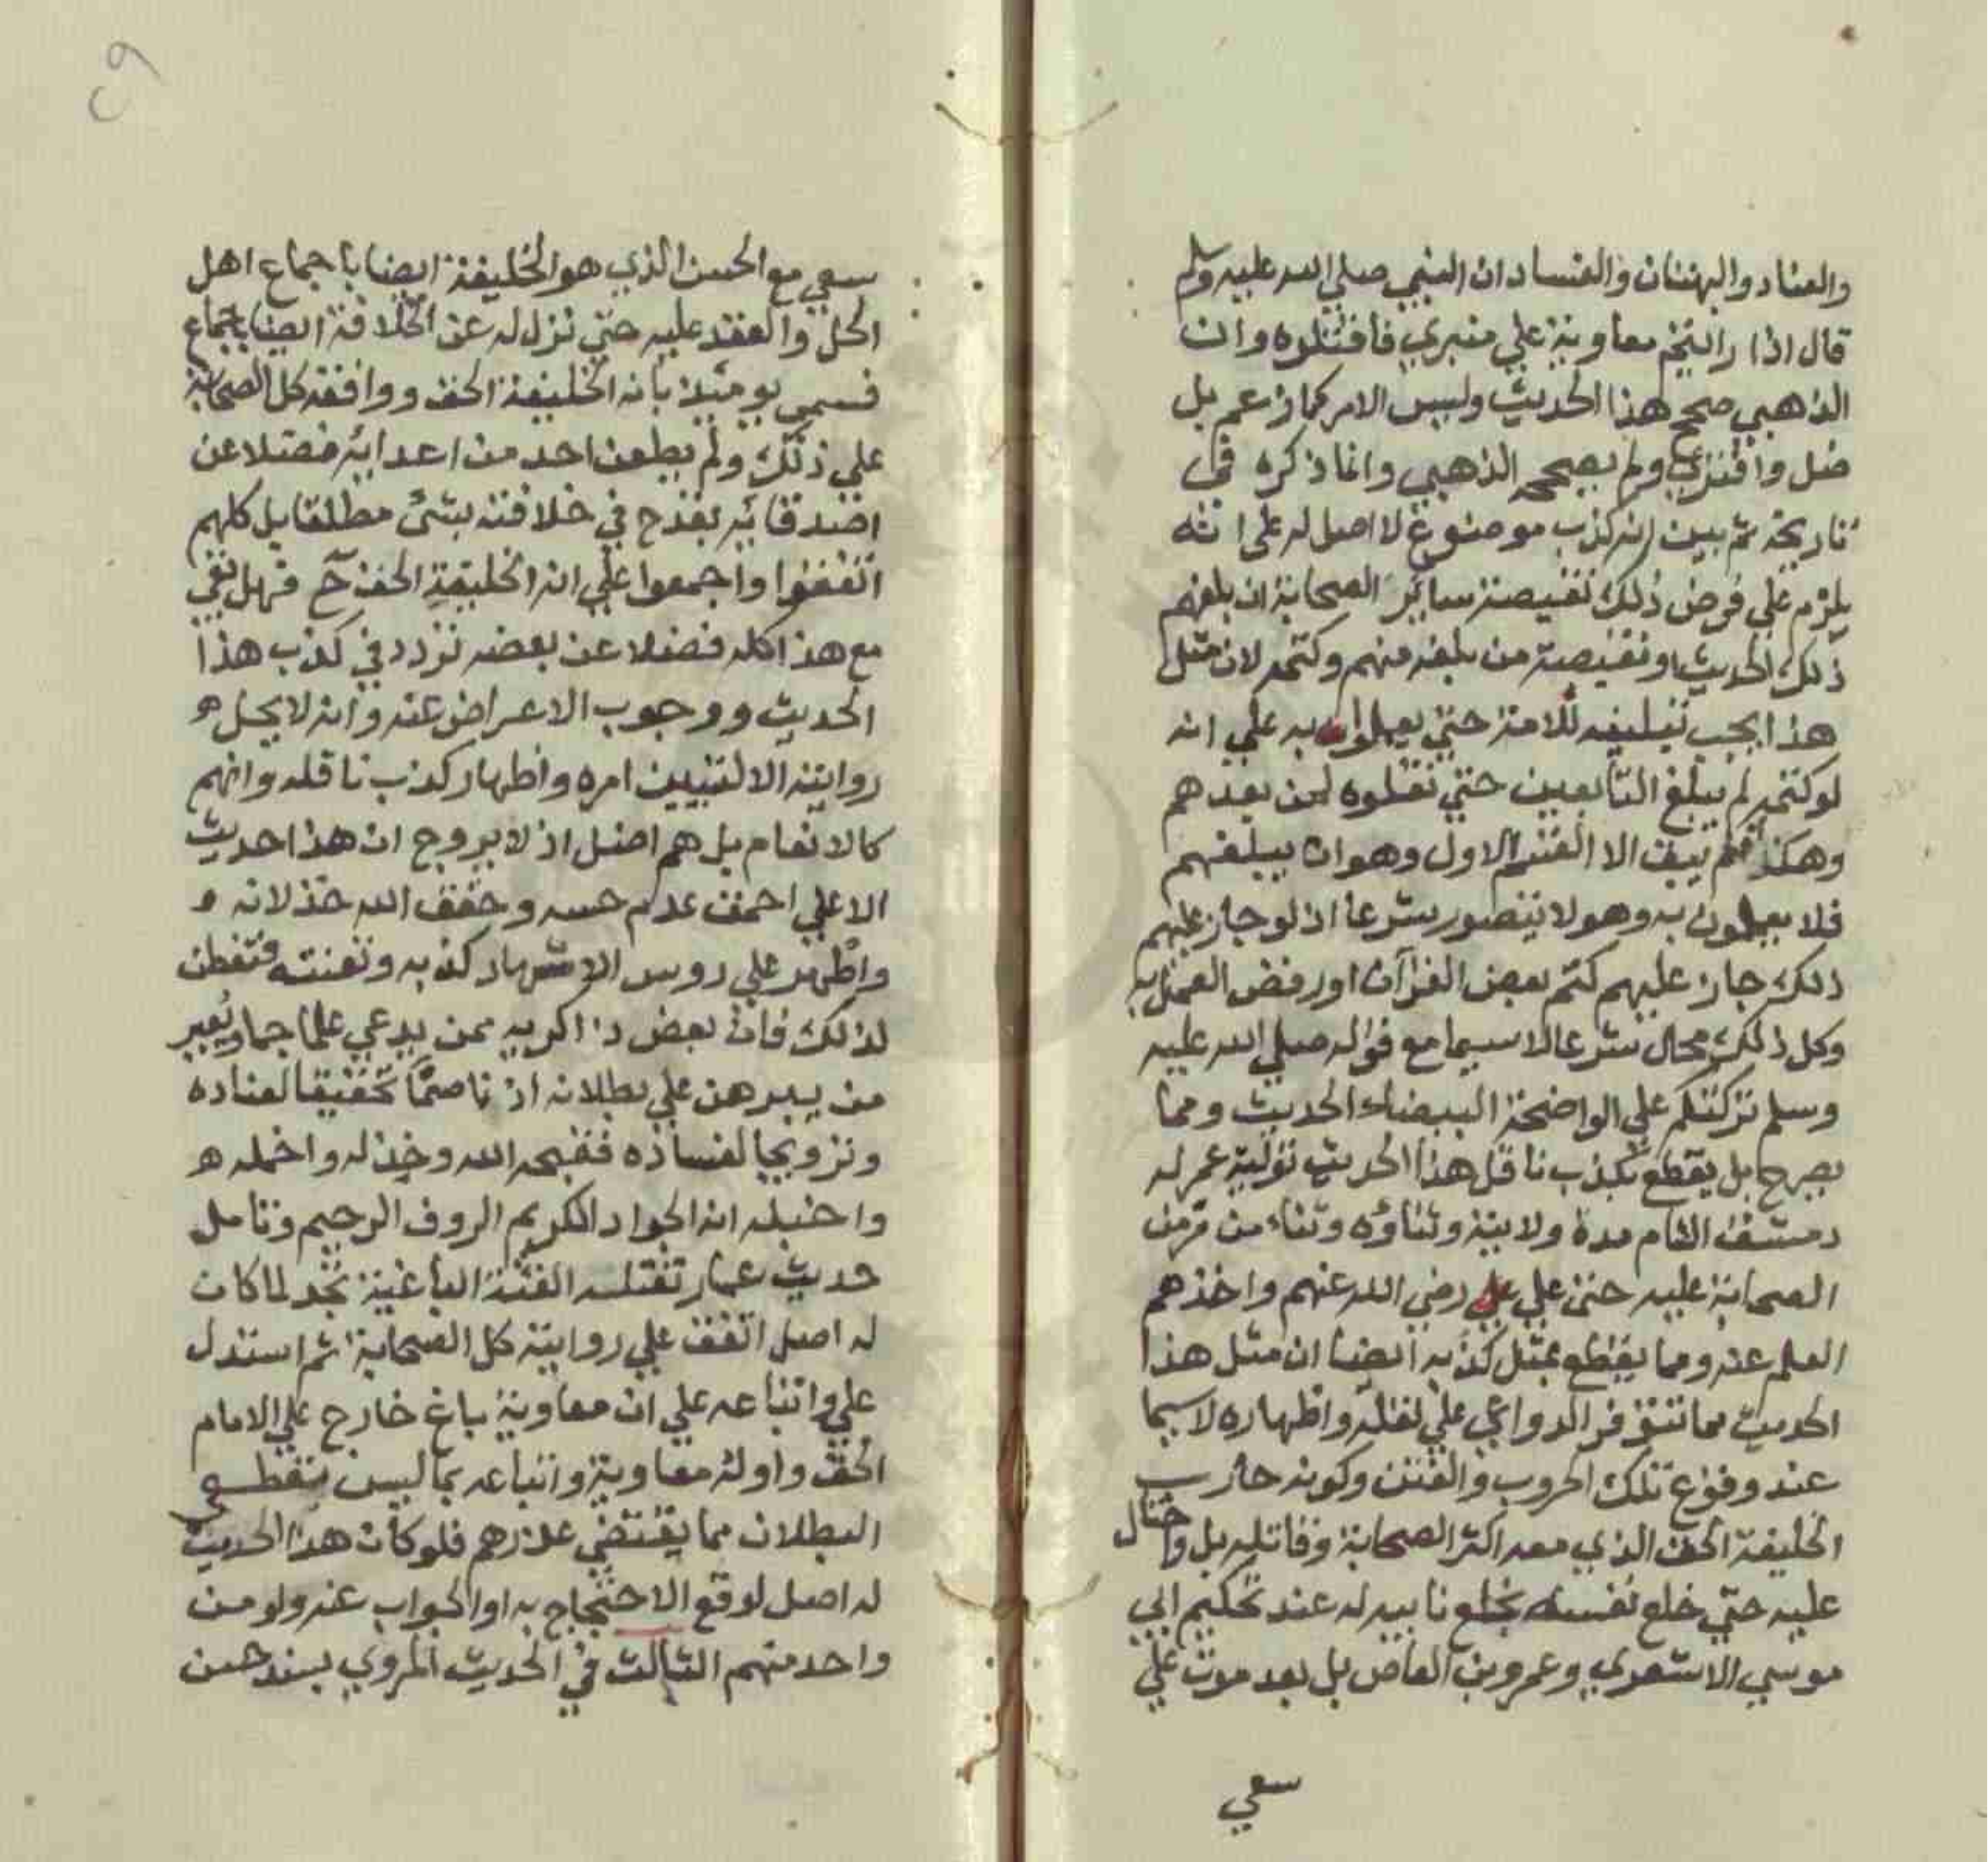 والعناد والبهتان والفساد ان النبي صلي الله عليه وسلم
قال اذا رايتم معاوية علي منبري فاقتلوه وان
الذهبي صحح هذا الحديث وليس الامر كما زعم بل
ضل وافتري ولم يصححه الذهبي وانما ذكره في
تاريخه ثم بين انه كذب موضوع لا اصل له علي انه
يلزم علي فرض ذلك نقيصة سائر الصحابة ان بلغهم
ذلك الحديث او نقيصة من بلغه منهم وكتمه لان مثل
هذا يجب تبليغه للامة حتي يعملوا به علي انه
لو كتمه لم يبلغ التابعين حتي نقلوه لمن بعدهم
وهكذا فلم يبق الا القسم الاول وهو ان يبلغهم
فلا يعملون به وهو لا يتصور شرعا اذ لو جاز عليهم
ذلك جاز عليهم كتم بعض القرآن او رفض العمل به
وكل ذلك محال شرعا لاسيما مع قوله صلي الله عليه
وسلم تركتكم علي الواضحة البيضاء الحديث ومما
يصرح بل يقطع بكذب ناقل هذا الحديث تولية عمر له
دمشق الشام مدة ولايته وثناؤه وثناء من
الصحابة عليه حتي علي رضي الله عنهم واخذهم
العلم عنه ومما يقطع كذبه ايضا ان مثل هذا
الحديث مما تتوفر الدواعي علي نقله واظهاره لاسيما
عند وقوع تلك الحروب والفتن وكونه حارب
الخليفة الحق الذي معه اكثر الصحابة وقاتله بل واحتال
عليه حتي خلع نفسه بخلع نايبه له عند تحكيم ابي
موسي الاشعري وعمرو بن العاص بل بعد موت علي
سعي
٢٩
سعي مع الحسن الذي هو الخليفة ايضا باجماع اهل
الحل والعقد عليه حتي نزل له عن الخلافة ايضا باجماع
فسمي يومئذ بانه الخليفة الحق ووافقه كل الصحابة
علي ذلك ولم يطعن احد من اعدائه فضلا عن
اصدقائه بقدح في خلافته بشئ مطلقا بل كلهم
اتفقوا واجمعوا علي انه الخليفة الحق ح فهل بقي
مع هذا كله فضلا عن بعضه تردد في كذب هذا
الحديث ووجوب الاعراض عنه وانه لا يحل
روايته الا لتبيين امره واظهار كذب ناقله وانهم
كالانعام بل هم اضل اذ لا يروج ان هذا حديث
الا علي احمق عدم حسه وحقق الله خذلانه
واظهر علي روس الاشهاد كذبه وتعنته فتفطن
لذلك فان بعض ذاكريه ممن يدعي علما
من يبرهن علي بطلانه اذ تحقيقا لعناده
وترويجا لفساده فقبحه الله وخذله واخمله
انه الجواد الكريم الروف الرحيم وتامل
حديث عمار تقتله الفئة الباغية تجد لما كان
له اصل اتفق علي روايته كل الصحابة ثم استدل
علي واتباعه علي ان معاوية باغ خارج علي الامام
الحق واوله معاوية واتباعه بما ليس بقطعي
البطلان مما يقتضي عذرهم فلو كان هذا الحديث
له اصل لوقع الاحتجاج به او الجواب عنه ولو من
واحد منهم الثالث في الحديث المروي بسند حسن